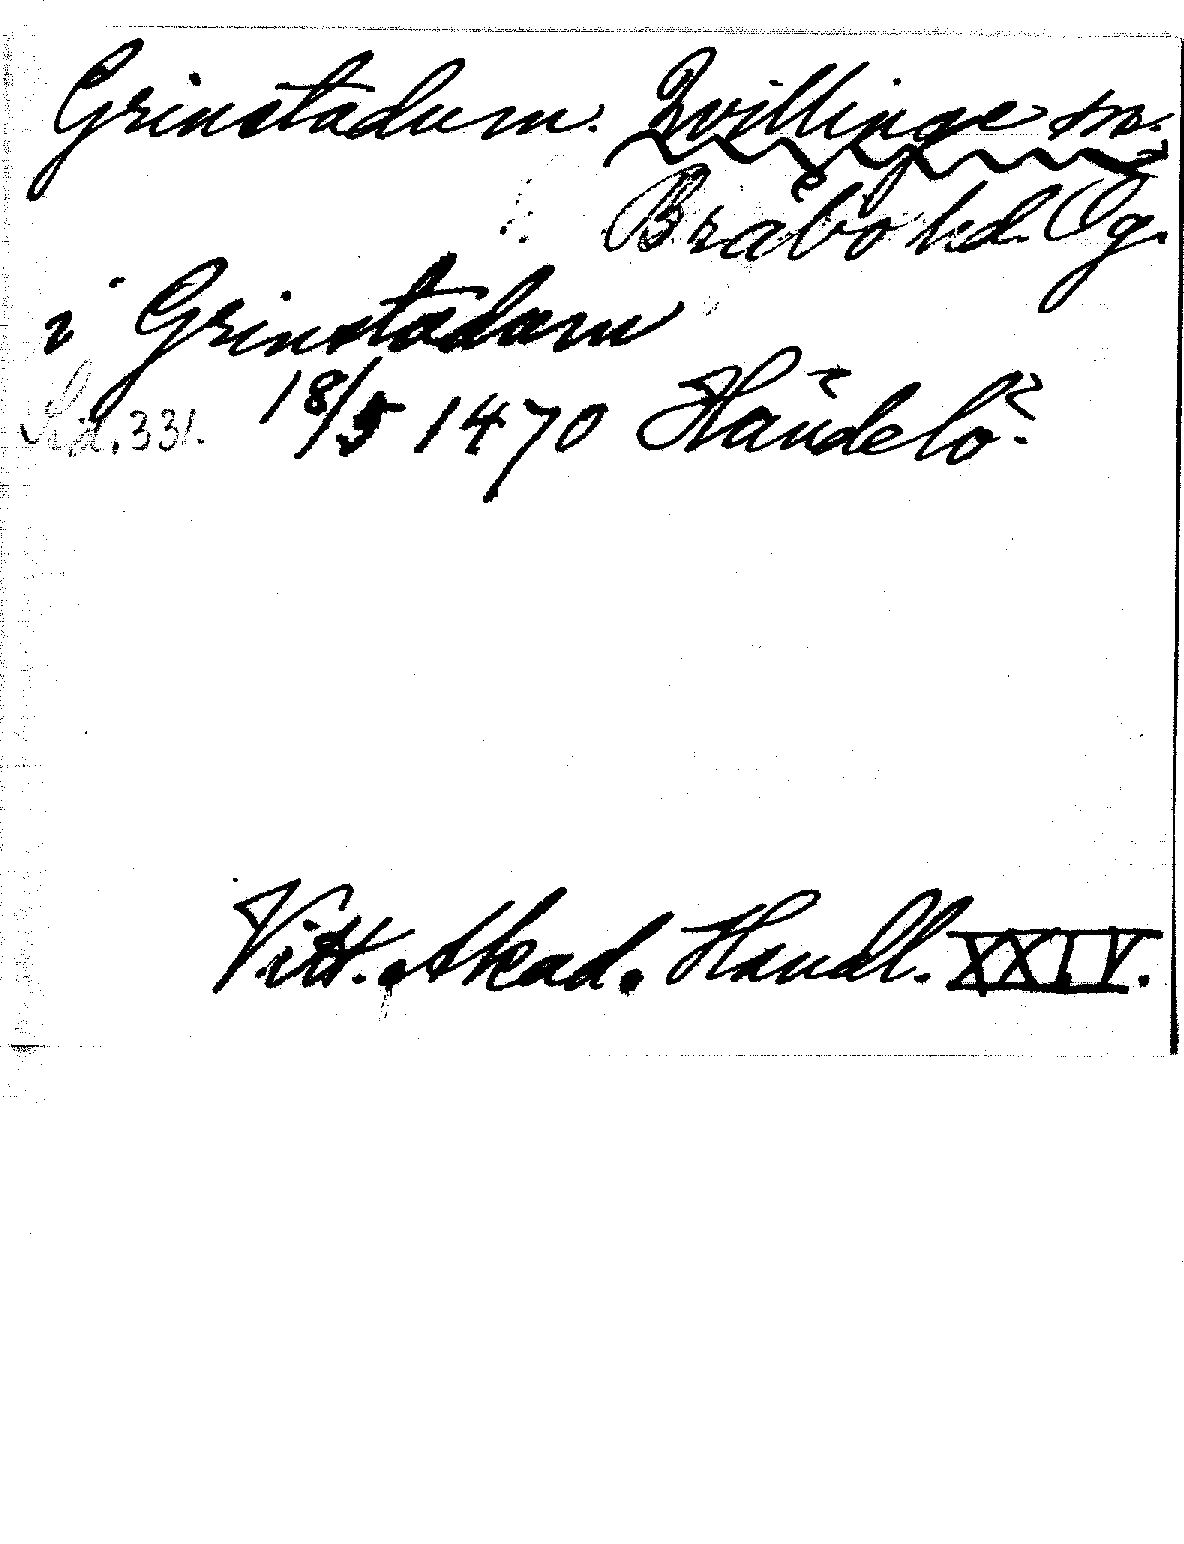 Grinstadum. Kvillinge sn.
Bråbo hd. Ög.
i Grinstadom
Sid. 331. 18/5 1470 Händelö.
Vitt. Akad. Handl. XXIV.